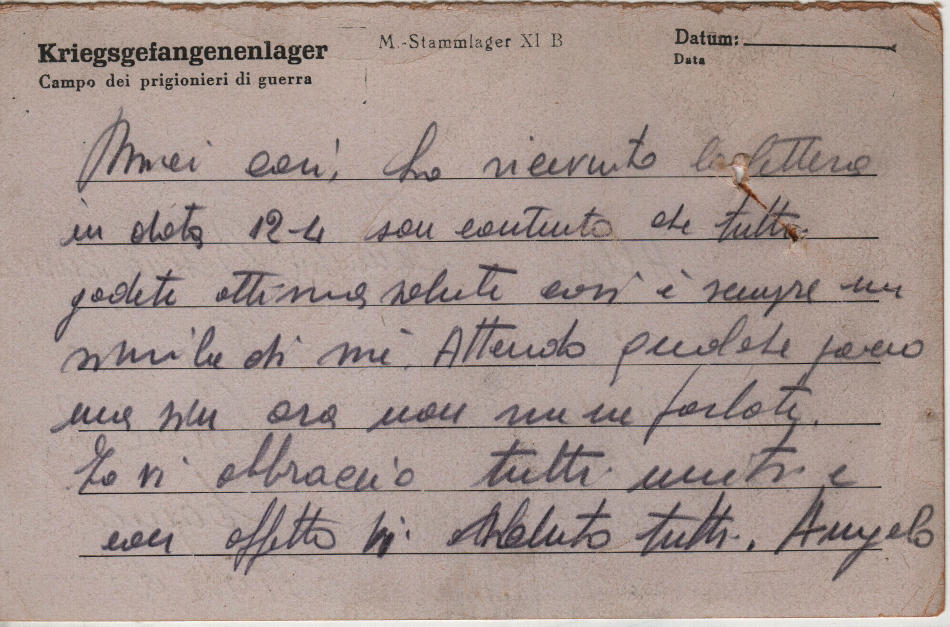 Kriegsgefangenenlager
Campo dei prigionieri di guerra
M.-Stammlager XI B
Datum:
Data
Miei cari, ho ricevuto la lettera
in data 12-4 son contento che tutti
godete ottima salute così è sempre un
simile di me. Attendo qualche pacco
ma sin ora non me ne parlate.
Io vi abbraccio tutti uniti e
con affetto vi saluto tutti. Angelo